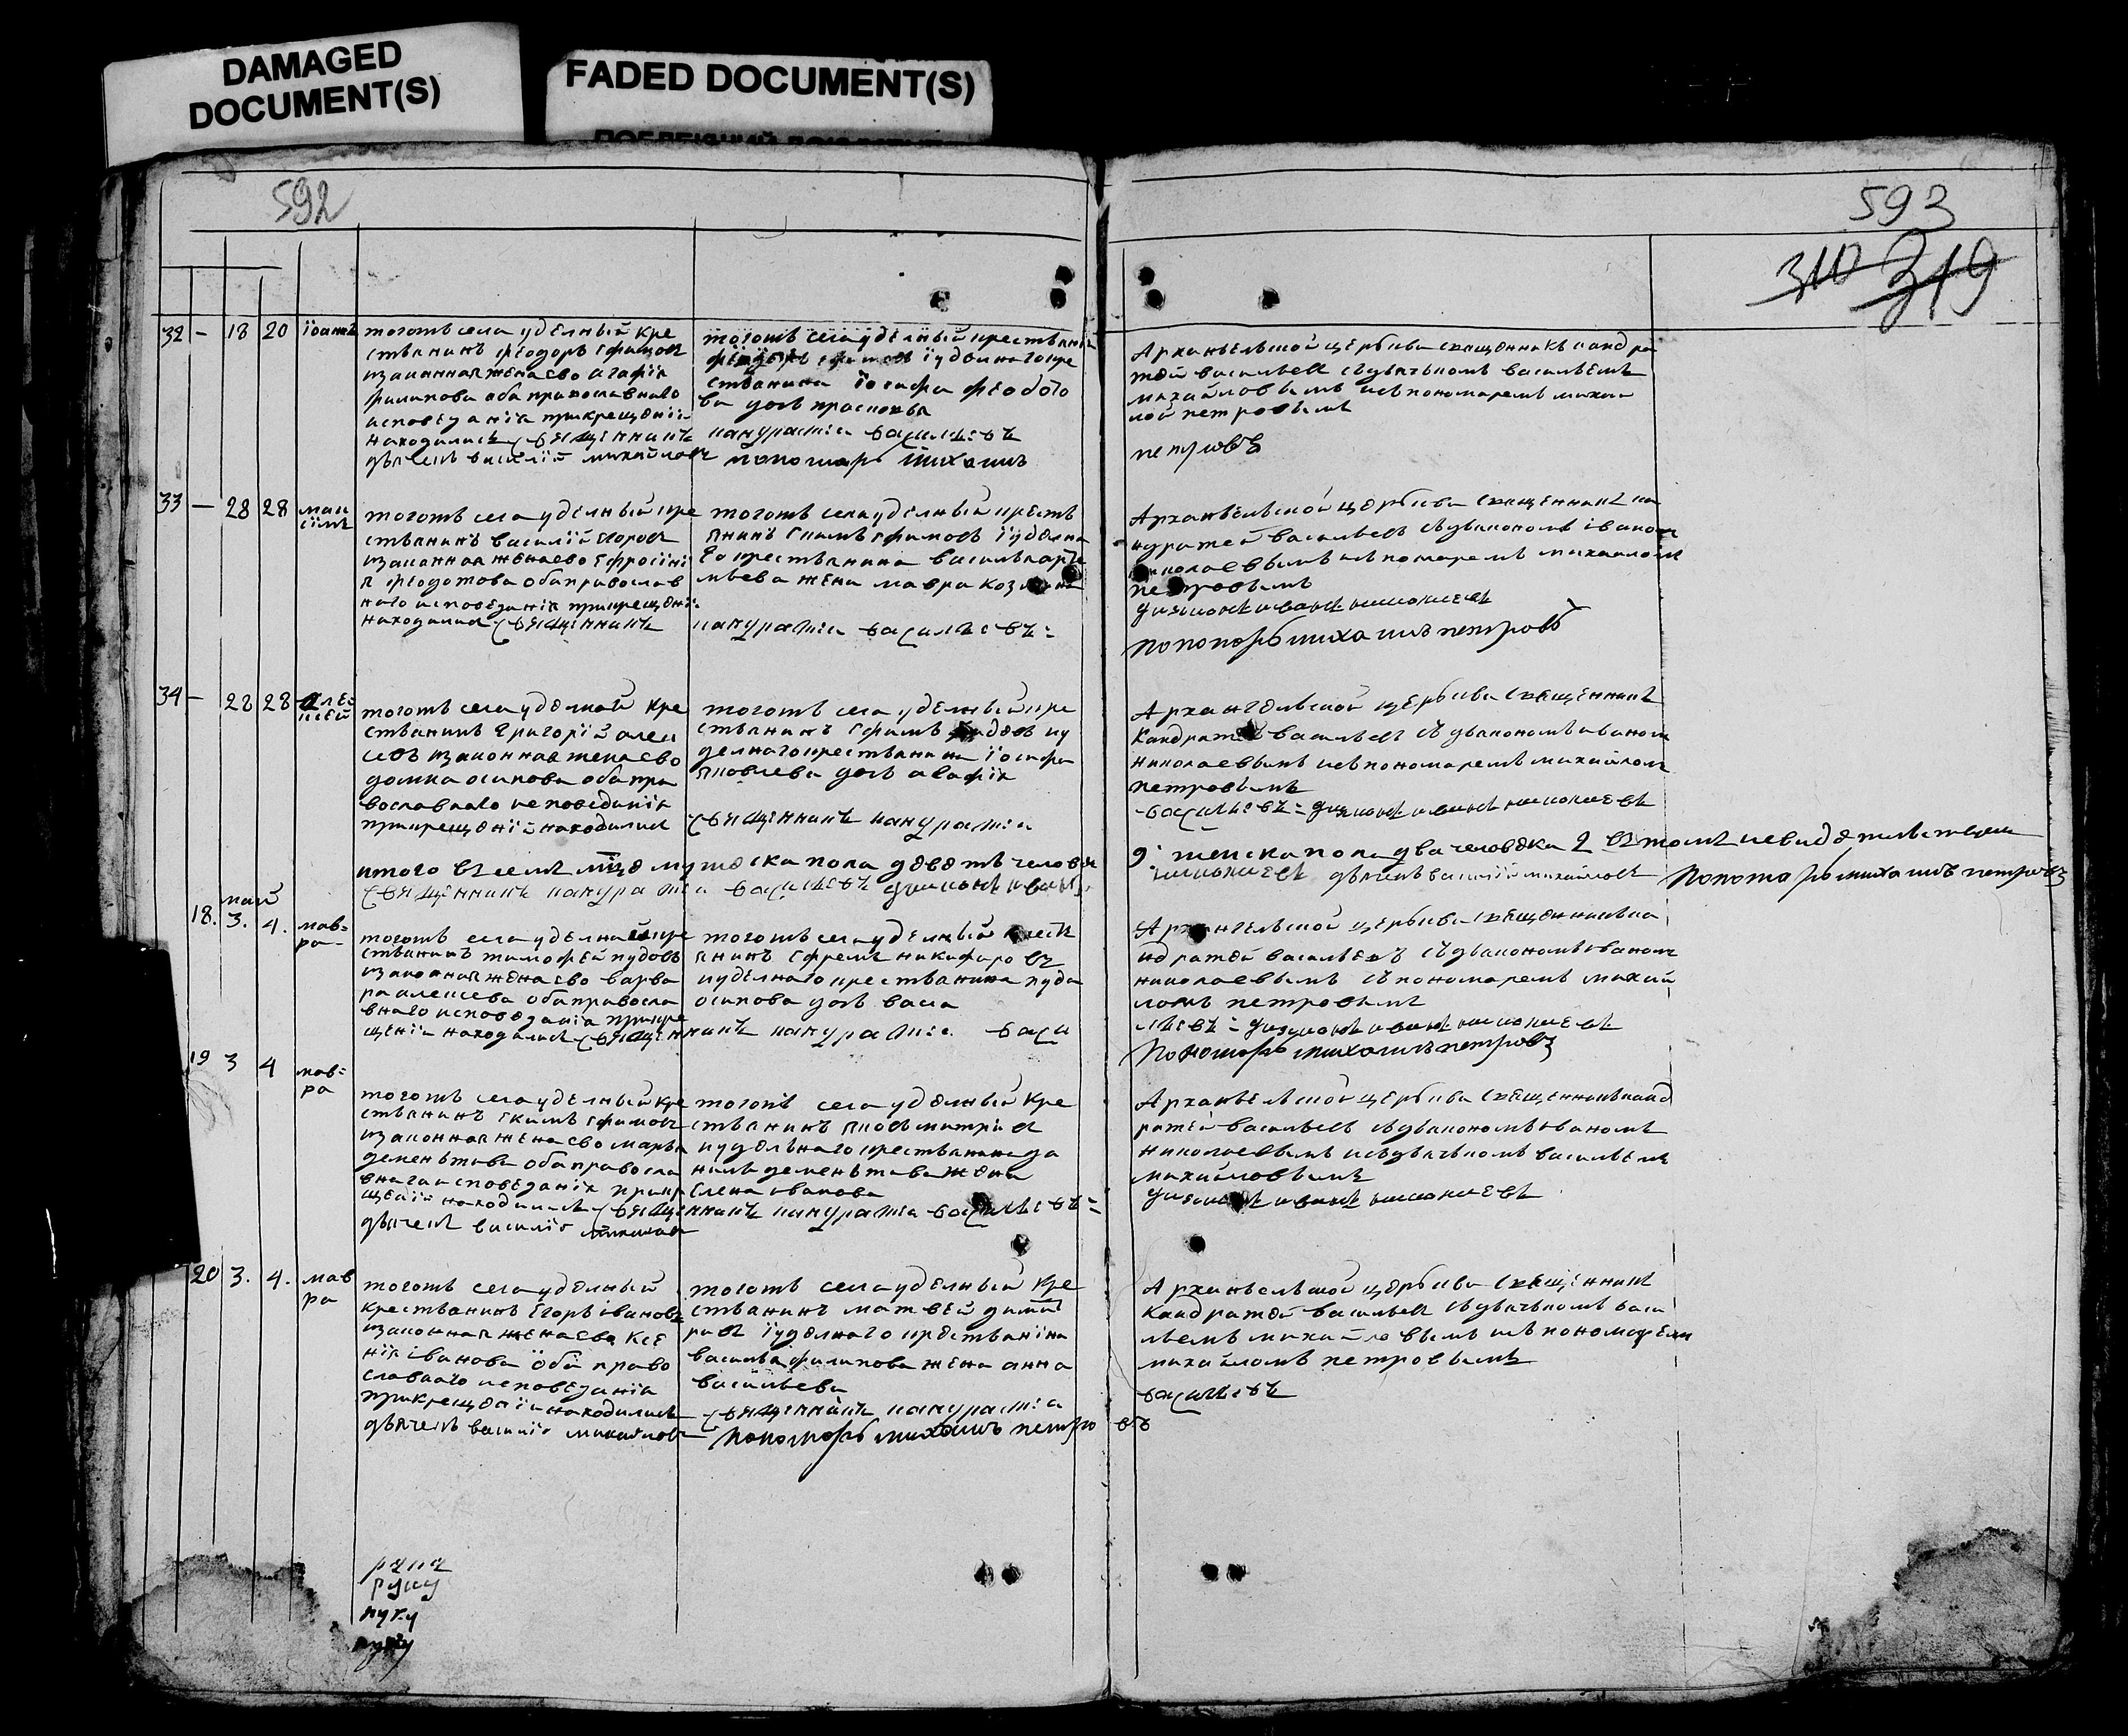 DAMAGED
DOCUMENT(S)
FADED DOCUMENT(S)
592
593
310 319
32 — 18 20 іоаннъ
тогожъ села уделный кре
стьянинъ феодоръ ефимовъ
изаконная жена ево агафія
филипова оба православнаго
исповеданія прикрещеніи
находились священникъ
дьячекъ василій михайловъ
тогожъ села уделный крестьяни
удельнаго кре
стьянина іосифа федото
ва дочь прасковья
кандратей васильевъ
пономарь михаилъ
Архангельской церькви священникъ кандра
тей васильевъ съдьячькомъ васильемъ
михайловымъ исъпономаремъ михаи
лой петровымъ
петровъ
33 — 28 28 мак
сімъ
тогожъ села уделный кре
стьянинъ василій егоровъ
изаконная жена ево ефросіні
я федотова оба православ
наго исповеданія прикрещеніи
находилися священникъ
тогожъ села уделный кресть
янинъ екимъ ефимовъ іуделна
го крестьянина василья арте
мьева жена мавра козмина
кандратеи васильевъ
Архангельской церькви священникъ ка
ндратей васильевъ съдьякономъ іваном
николаевымъ исъпономаремъ михаиломъ
петровымъ
диаконъ иванъ николаевъ
пономарь михаилъ петровъ
34 — 28 28 алек
сей
тогожъ села уделной кре
стьянинъ григорій алек
севъ изаконная жена ево
домна осипова оба пра
вославнаго исповеданія
прикрещеніи находились
тогожъ села уделный кре
стьянинъ ефимъ иу
делнаго крестьянина іосифа
яковлева дочь агафія
священникъ кандратеи
Архангельской церькви священникъ
Кандратей васильевъ съдьякономъ иваном
николаевымъ исъпономаремъ михайлом
петровымъ
васильевъ диаконъ иванъ николаевъ
итого въ семъ месце мужеска пола деветь человек
9: женска пола два человека 2 въ томъ исвидетельствуем
священникъ кандратеи васильевъ диаконъ иванъ
николаевъ дьячекъ василій михайловъ пономарь михаилъ петровъ
май
18. 3. 4. мав=
ра
тогожъ села уделной кре
стьянинъ тимофей пудовъ
изаконная жена ево варва
ра алексева оба правосла
внаго исповеданія прикре
щеніи находились священникъ кандратеи васи
тогожъ села уделный кресть
янинъ ефремъ никифоровъ
иуделнаго крестьянина пуда
осипова дочь васа
Архангельской церькви священникъ ка
ндратей васильевъ съдьякономъ иваном
николаевымъ съпономаремъ михаи
ломъ петровымъ
льевъ диаконъ иванъ николаевъ
пономарь михаилъ петровъ
19 3 4 мав=
ра
тогожъ села уделный кре
стьянинъ екимъ ефимовъ
изаконная жена ево марья
дементьева оба правосла
внага исповеданія прикр
щеніи находились священникъ кандратеи васильевъ
дьячекъ василій михайловъ
тогожъ села уделный кре
стьянинъ яковъ митріев
иудельнаго крестьянина да
нила дементьева жена
елена иванова
Архангельской церькви священникъ канд
ратей васильевъ съдьякономъ иваномъ
николаевымъ исъдьячькомъ васильемъ
михайловымъ
диаконъ иванъ николаевъ
20 3. 4. мав
ра
тогожъ села уделный
крестьянинъ егоръ івановъ
изаконная жена ево ксе
нія іванова оба право
славнаго исповеданія
прикрещеніи находились
дьячекъ василій михайловъ
тогожъ села уделный кре
стьянинъ матвей дмит
ревъ іуделнаго крестьяніна
василья филипова жена анна
васильева
священникъ кандратеи
пономарь михаилъ петро въ
Архангельской церькви священникъ
Кандратей васильевъ съдьячькомъ васи
льемъ михайловымъ исъпономарем
михайломъ петровымъ
васильевъ
рука
руку